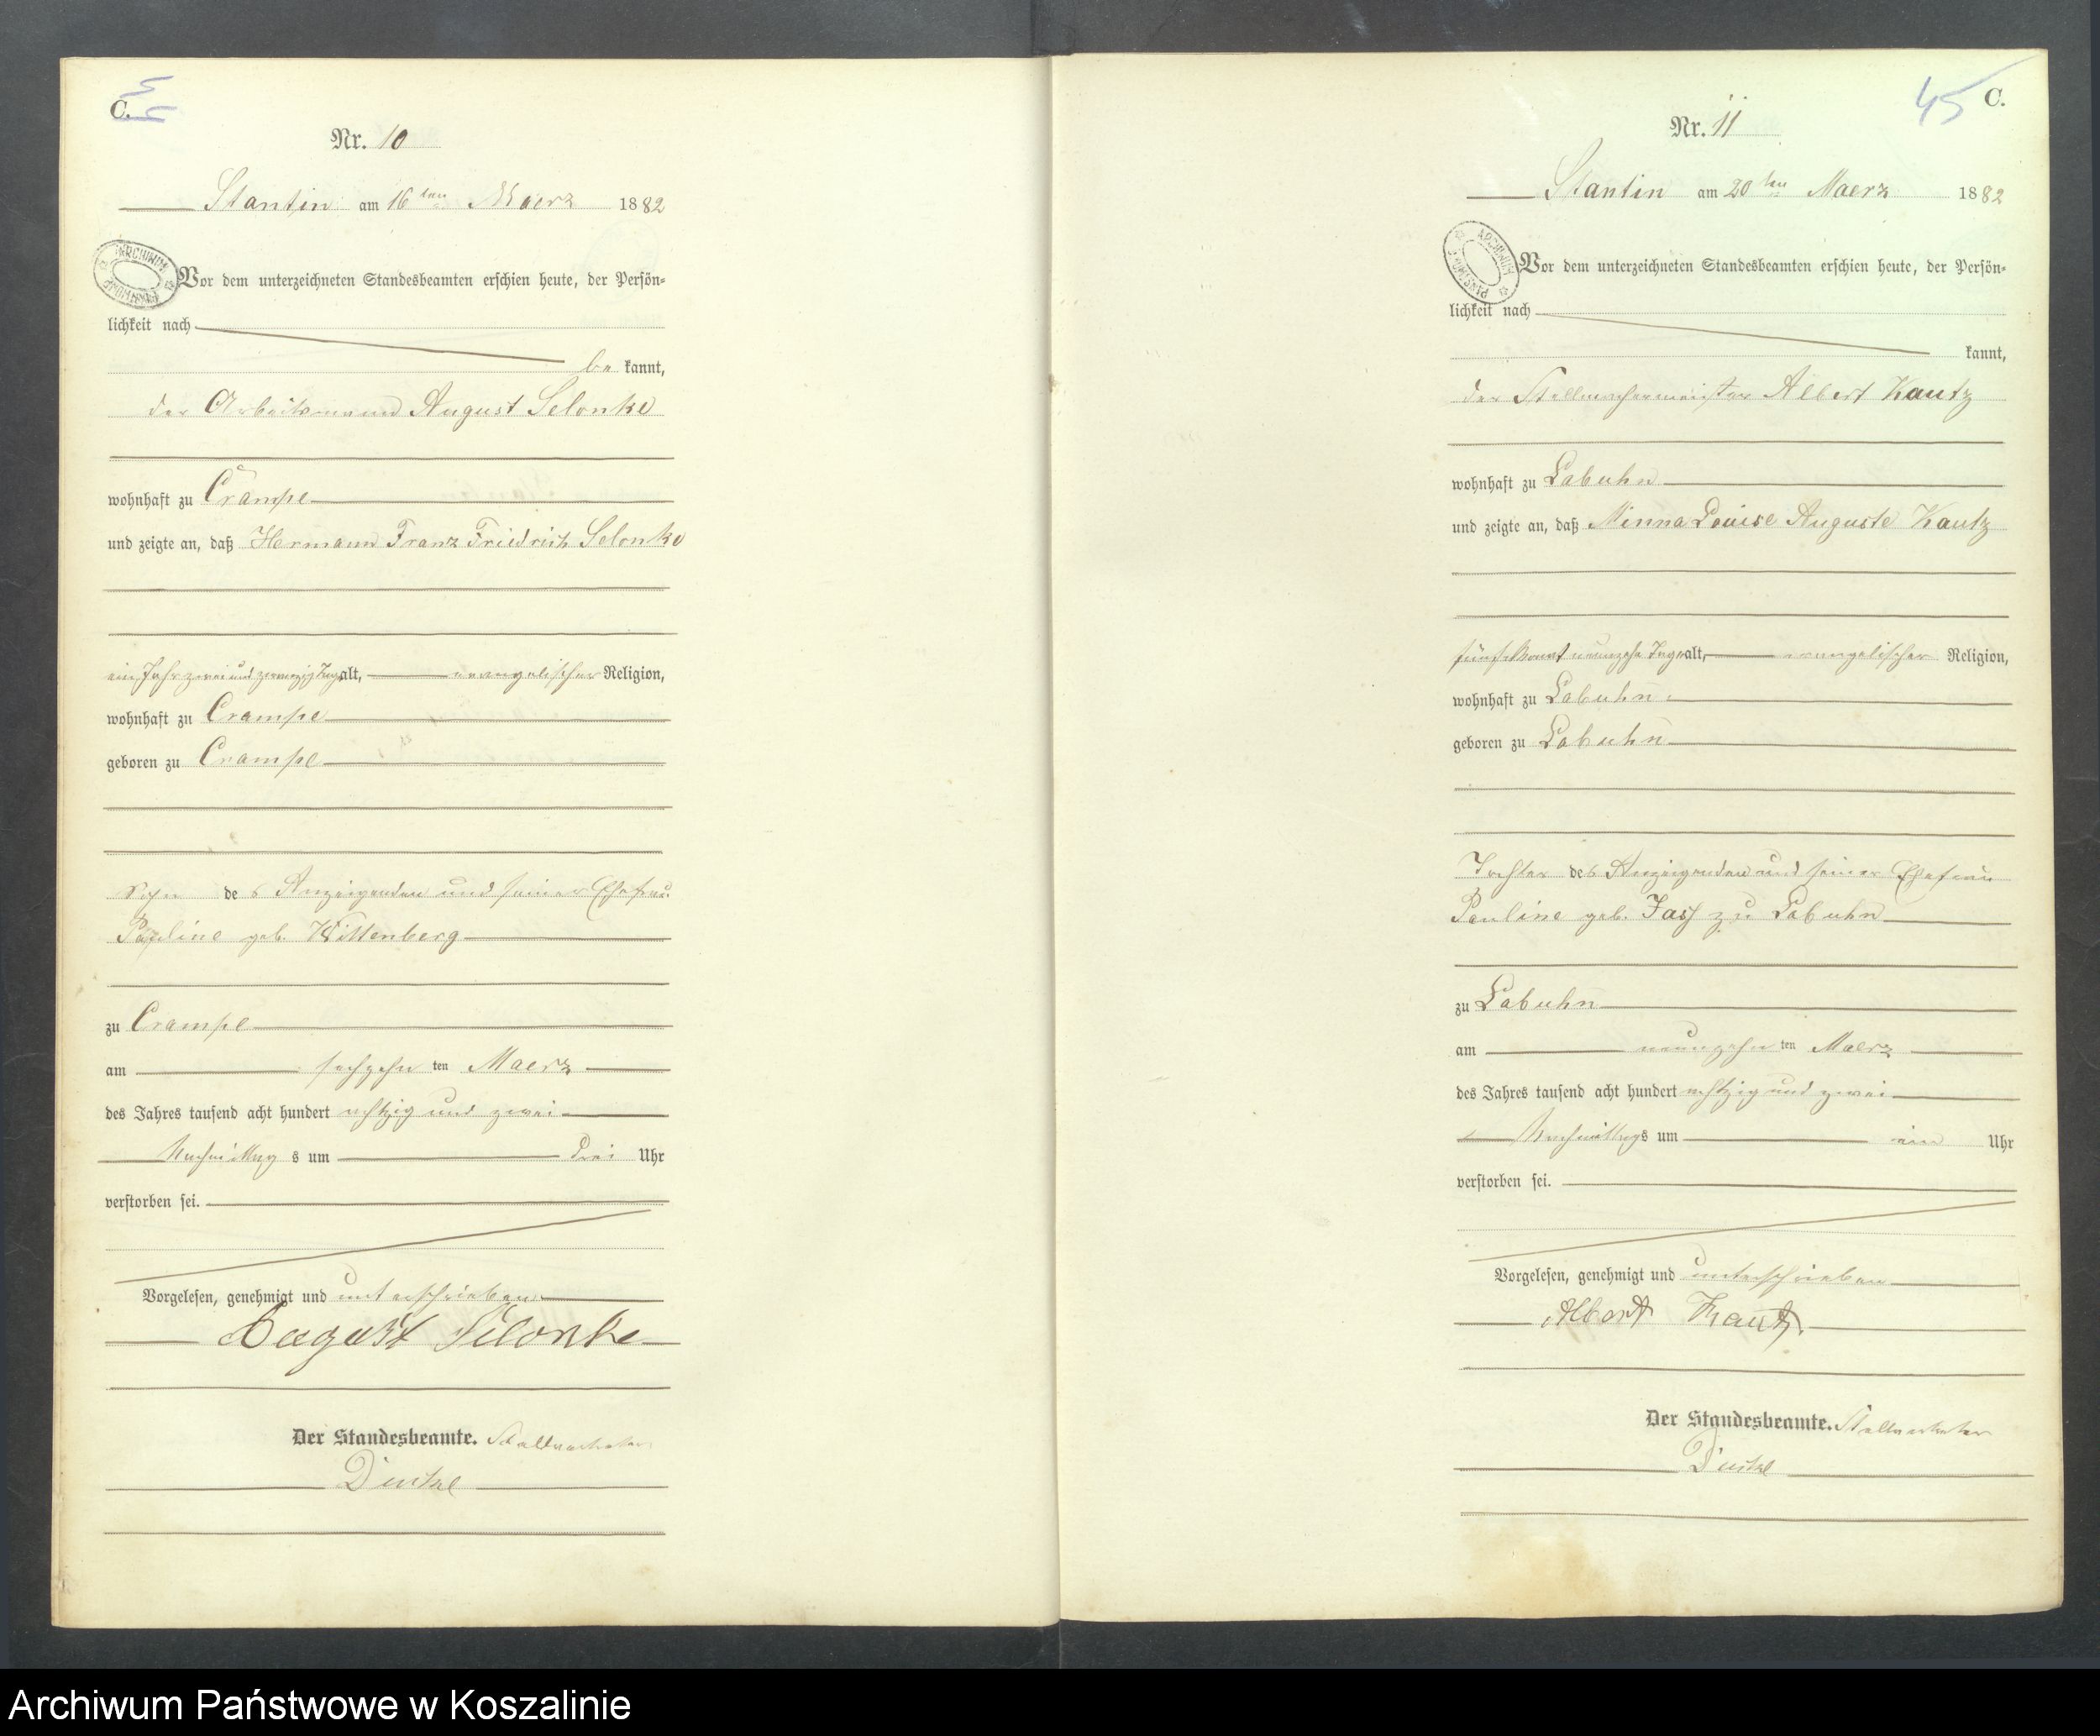 C.
Nr. 10
Stantin am 16ten Maerz 1882
ARCHIWUM PAŃSTWOWE
Vor dem unterzeichneten Standesbeamten erschien heute, der Persön-
lichkeit nach
be kannt,
der Arbeitsmann August Selonke
wohnhaft zu Crampe
und zeigte an, daß Hermann Franz Friedrich Selonke
ein Jahr zwei und zwanzig Tage alt, evangelischer Religion,
wohnhaft zu Crampe
geboren zu Crampe
Sohn des Anzeigenden und seiner Ehefrau
Pauline geb. Wittenberg
zu Crampe
am sechzehn ten Maerz
des Jahres tausend acht hundert achtzig und zwei
Nachmittag s um drei Uhr
verstorben sei.
Vorgelesen, genehmigt und unterschrieben
August Selonke
Der Standesbeamte. Stellvertreter
45 C.
Nr. 11
Stantin am 20ten Maerz 1882
ARCHIWUM PAŃSTWOWE
Vor dem unterzeichneten Standesbeamten erschien heute, der Persön-
lichkeit nach
kannt,
der Stellmachermeister Albert Kautz
wohnhaft zu Labuhn
und zeigte an, daß Minna Louise Auguste Kautz
fünf Monat neunzehn Tage alt, evangelischer Religion,
wohnhaft zu Labuhn
geboren zu Labuhn
Tochter des Anzeigenden und seiner Ehefrau
Pauline geb. zu Labuhn
zu Labuhn
am neunzehn ten Maerz
des Jahres tausend acht hundert achtzig und zwei
Nachmittags um ein Uhr
verstorben sei.
Vorgelesen, genehmigt und unterschrieben
Albert Kautz.
Der Standesbeamte. Stellvertreter
Archiwum Państwowe w Koszalinie